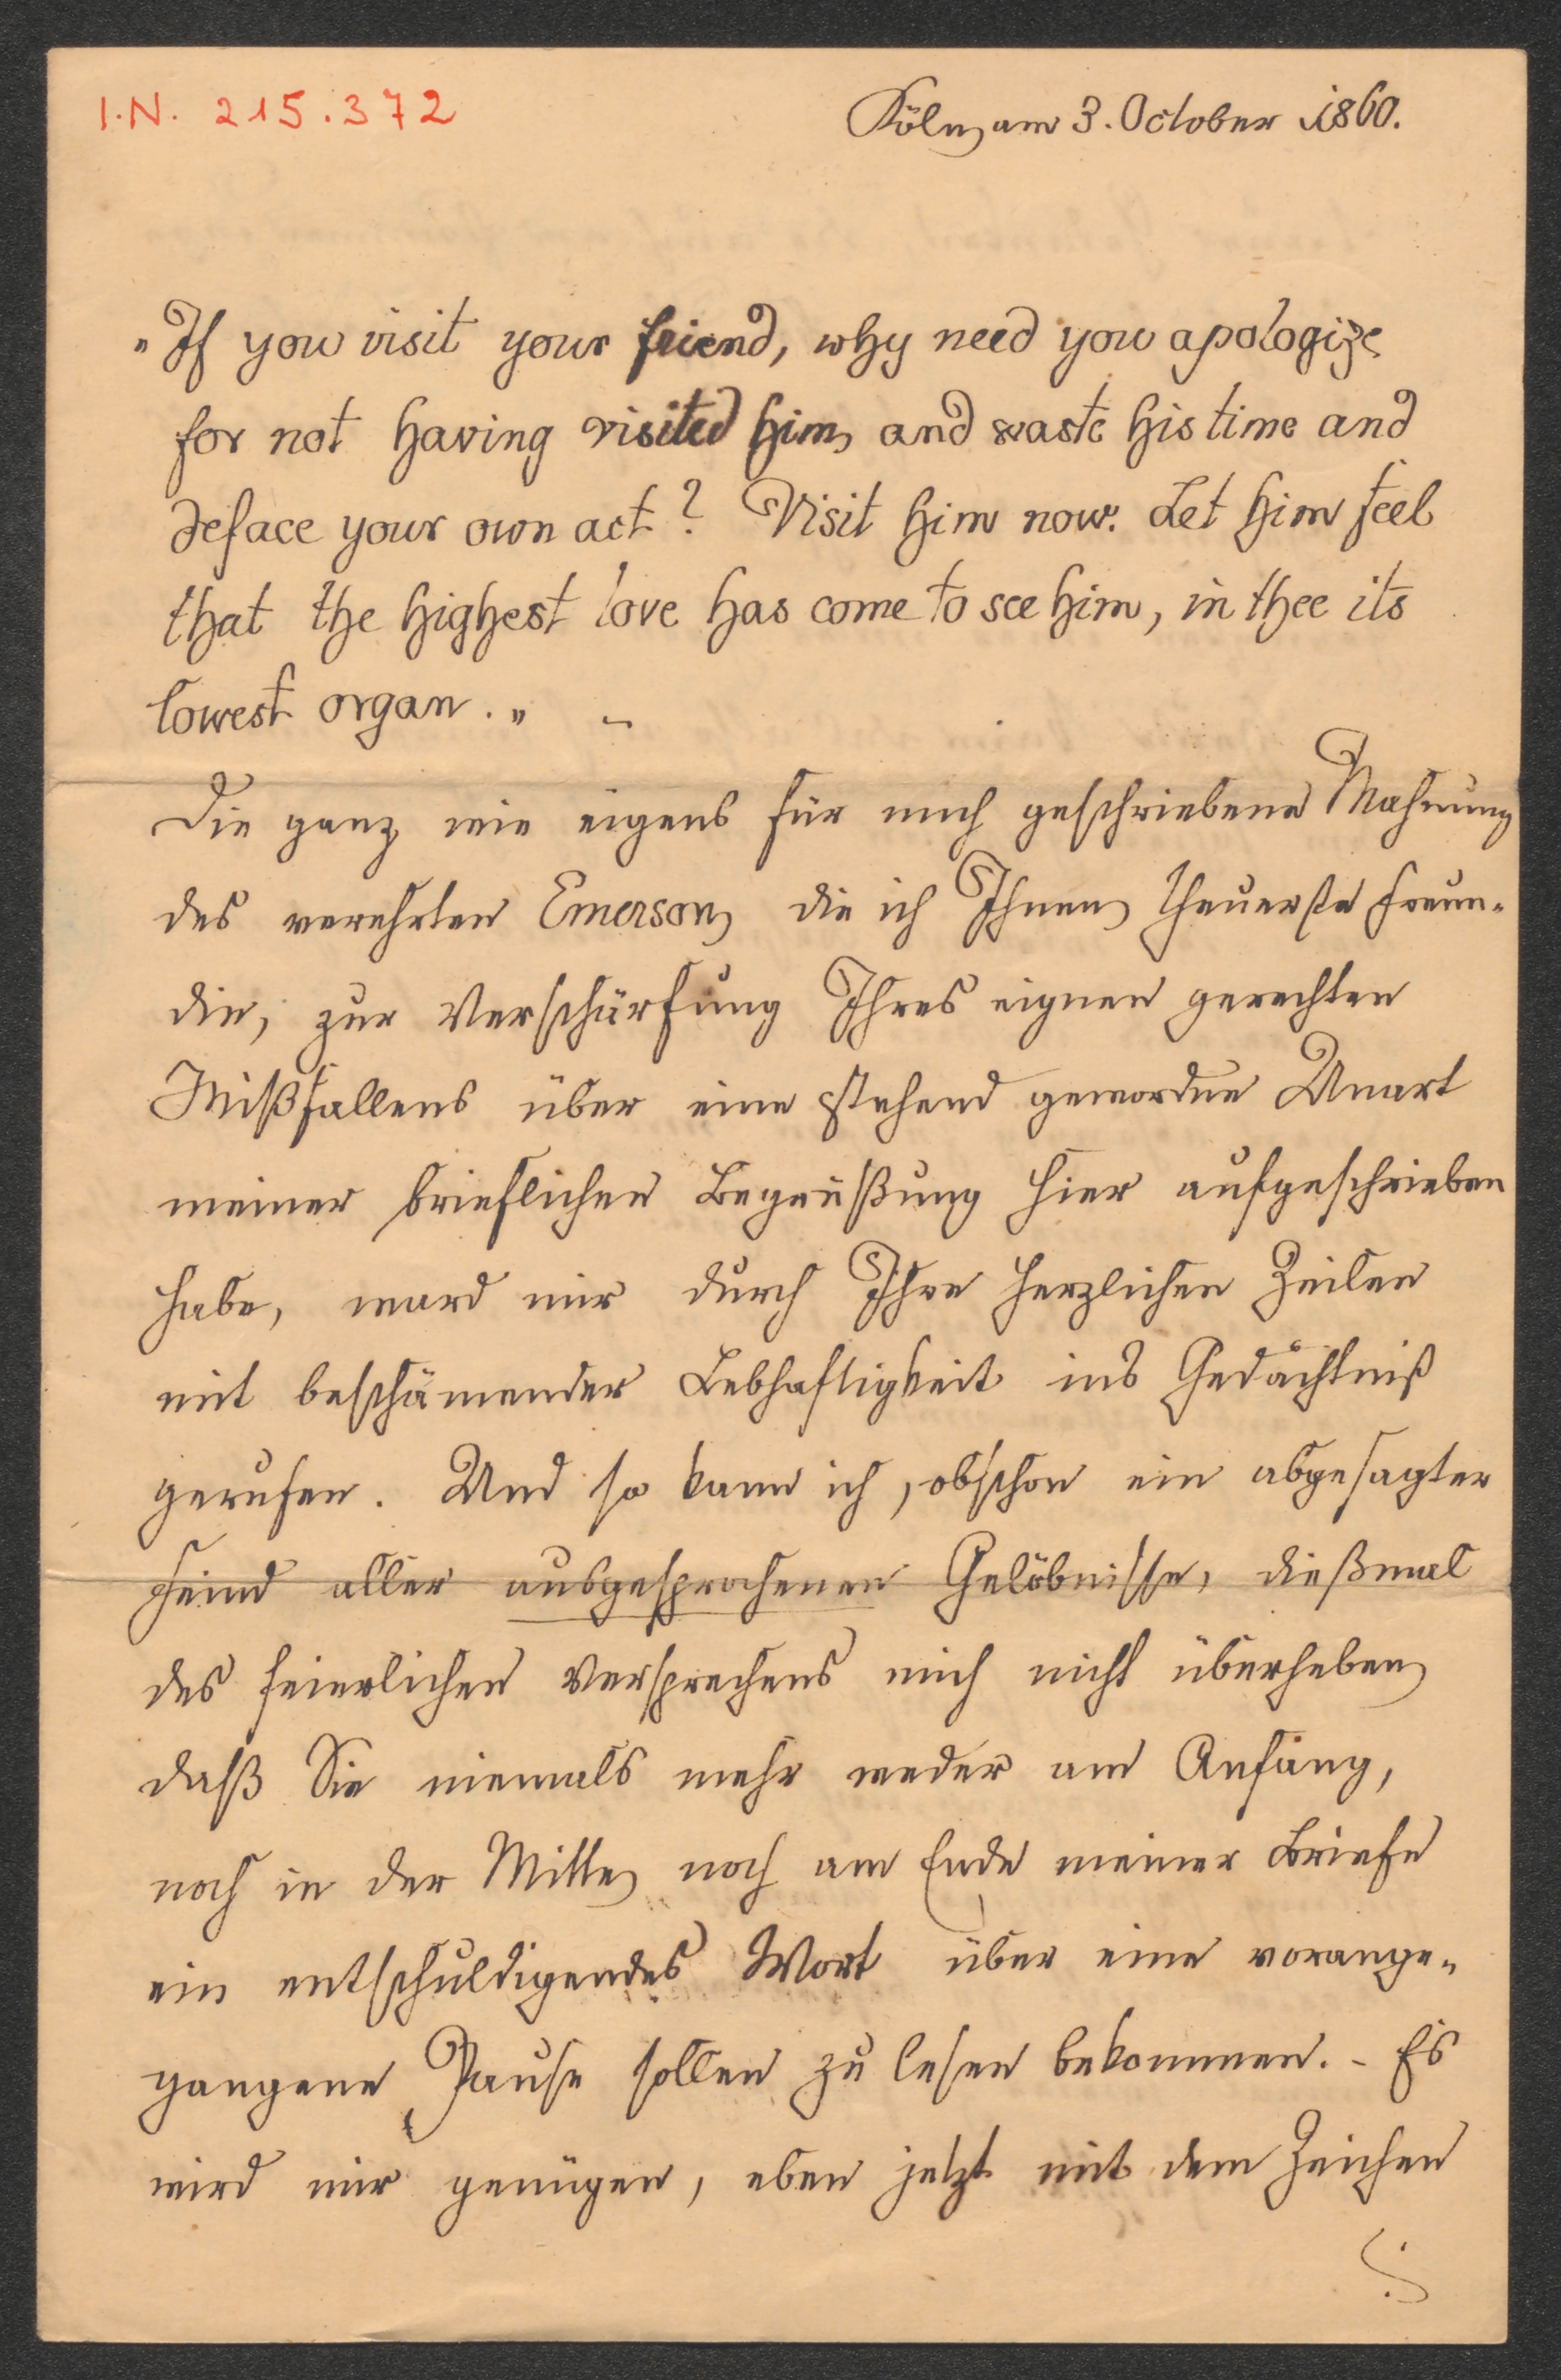 I.N. 215.372
Köln, am 3. October 1860.
„If you visit your friend, why need you apologize
for not having visited him, and waste his time and
deface your own act? Visit him now. Let him feel
that the highest love has come to see him, in thee its
lowest organ.„ –
Die ganz wie eigens für mich geschriebene Mahnung
des verehrten Emerson, die ich Ihnen, theuerste Freun-
din, zur Verschärfung Ihres eignen gerechten
Mißfallens über eine stehend gewordne Unart
meiner brieflichen Begrüßung hier aufgeschrieben
habe, ward mir durch Ihre herzlichen Zeilen
mit beschämender Lebhaftigkeit ins Gedächtniß
gerufen. Und so kann ich, obschon ein abgesagter
Feind aller ausgesprochenen Gelöbnisse, dießmal
des feierlichen Versprechens mich nicht überheben,
daß Sie niemals mehr weder am Anfang,
noch in der Mitte, noch am Ende meiner Briefe
ein entschuldigendes Wort über eine vorange-
gangene Pause sollen zu lesen bekommen. – Es
wird mir genügen, eben jetzt mit dem Zeichen